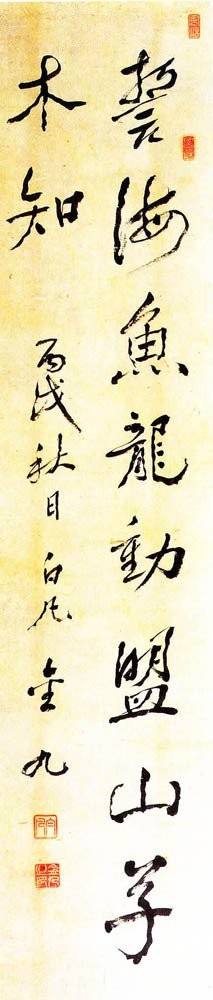 誓海魚龍動盟山草
木知
丙戌秋日白凡金九